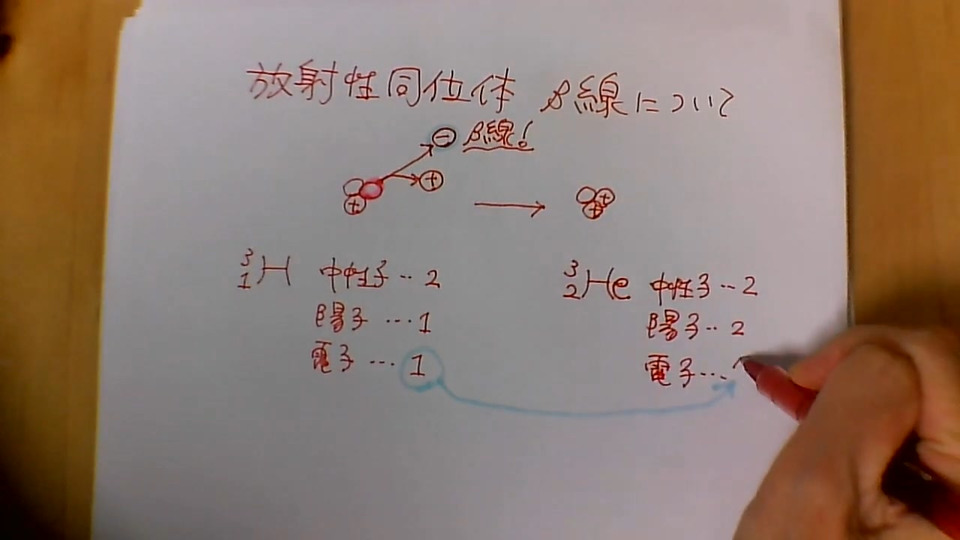 放射性同位体 β線について
⊖ β線!
⊕
⊕ → ⊕ ⊕
³₁H 中性子‥2
陽子…1
電子…1
³₂He 中性子‥2
陽子‥2
電子…